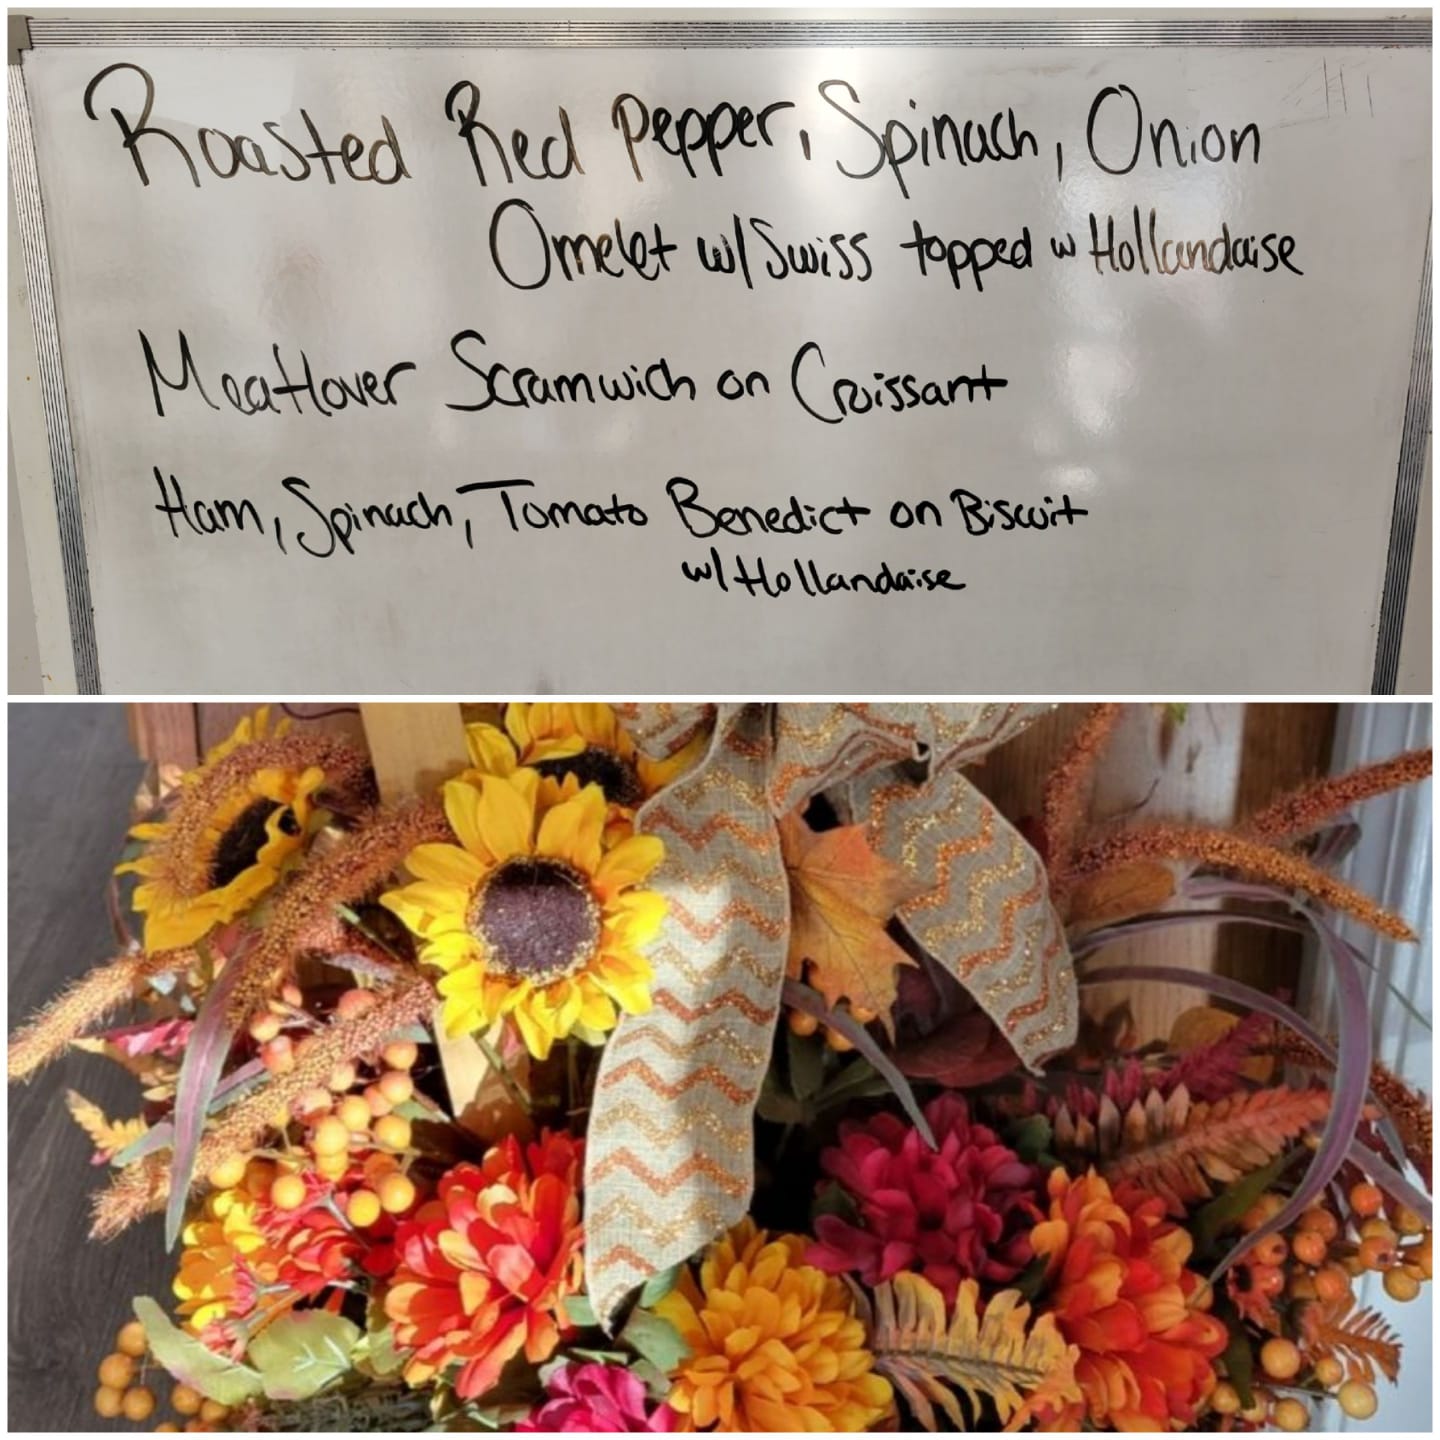 Roasted Red Pepper, Spinach, Onion
Omelet w/ Swiss topped w Hollandaise
Meatlover Scramwich on Croissant
Ham, Spinach, Tomato Benedict on Biscuit
w/ Hollandaise